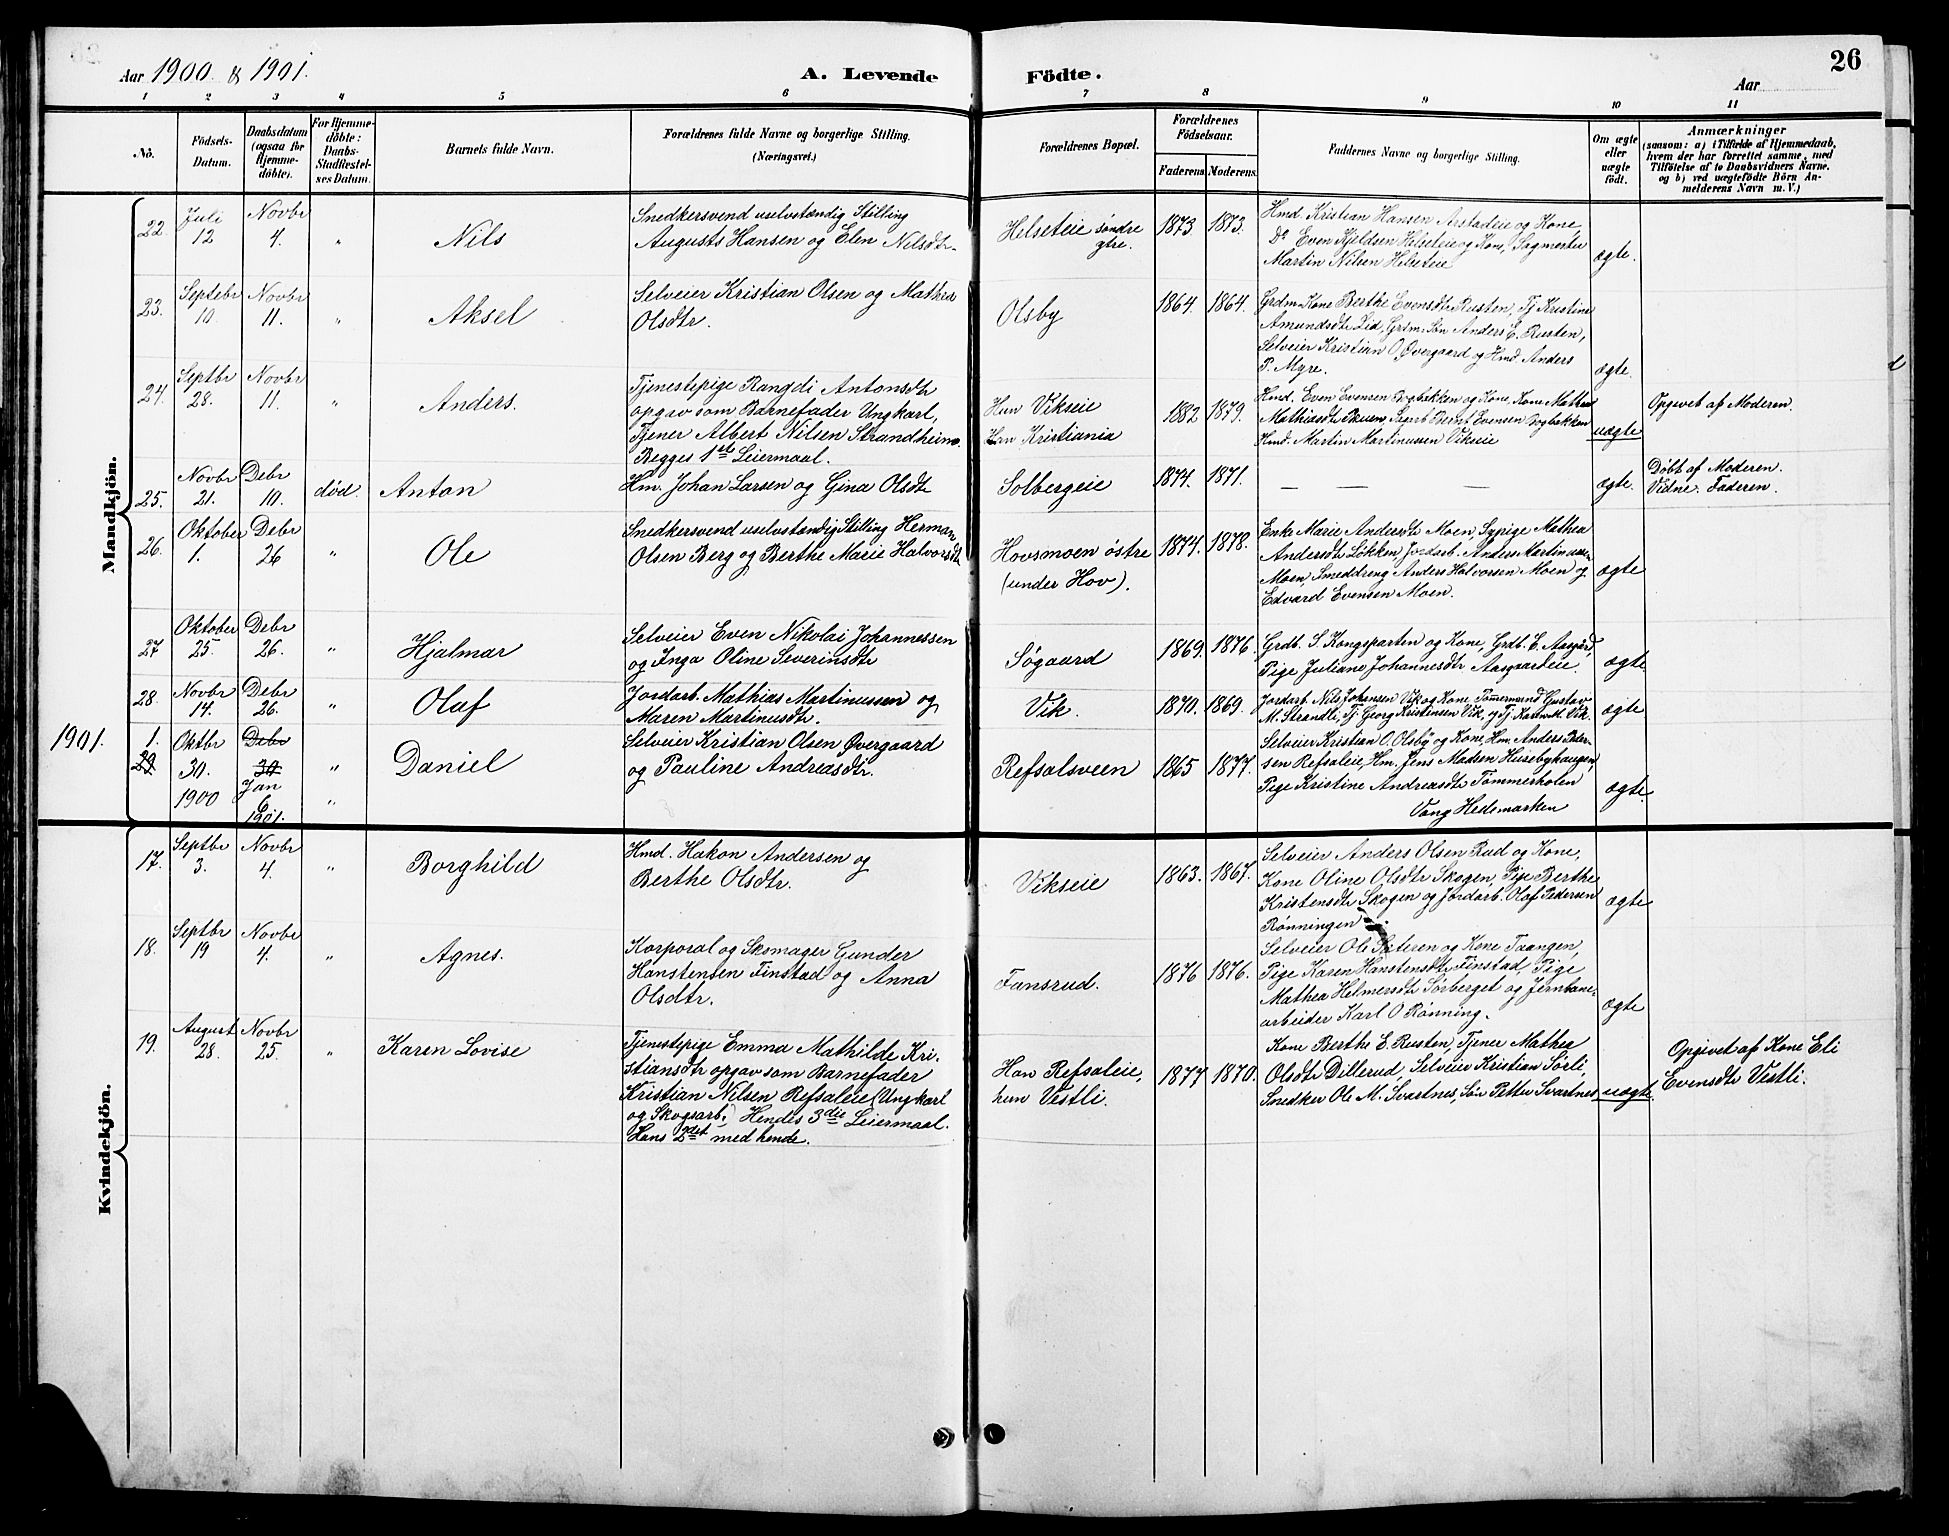 26
Aar 1900 & 1901.
A. Levende Födte.
Aar
1 2 3 4 5 6 7 8 9 10 11
No.
Födsels-Datum.
Daabsdatum (ogsaa for Hjemmedöbte).
For Hjemmedöbte: Daabs-Stadfæstelses Datum.
Barnets fulde Navn.
Forældrenes fulde Navne og borgerlige Stilling. (Næringsvei.)
Forældrenes Bopæl.
Forældrenes Födselsaar.
Faderens Moderens
Faddernes Navne og borgerlige Stilling.
Om ægte eller uægte født.
Anmærkninger
(saasom: a) i Tilfælde af Hjemmedaab,
hvem der har forrettet samme, med
Tilföielse af to Daabsvidners Navne,
og b) ved uægtefödte Börn An-
melderens Navn m. V.)
Mandkjön.
22. Juli 12 Novbr 4. "
Nils
Snedkersvend uselvstændig Stilling
Augusts Hansen og Elen Nilsdtr
Helseteie søndre gtre.
1873 1873.
Hmd Kristian Hansen Arstadeie og Kone,
Do Even Kjeldsen Helseteie og Kone, Sagmester
Martin Nilsen Helseteie
ægte.
23. Septebr 10 Novbr 11. "
Aksel
Selveier Kristian Olsen og Mathea
Olsdtr.
Olsby
1864 1864.
Grdm. Kone Berthe Evensdtr Rusten, Tj Kristine
Amundsdtr Lid, Grdm. Søn Anders E. Rusten,
Selveier Kristian O. Øvergaard og Hmd. Anders
P. Myre.
ægte.
24. Septbr 28. Novbr 11. "
Anders.
Tjenestepige Rangdi Antonsdtr
opgav som Barnefader Ungkarl,
Tjener Albert Nilsen Strandheim.
Begges 1ste Leiermaal.
Hun Vikseie
Han Kristiania
1882 1879.
Hmd. Even Evensen Bogbakken og Kone, Kone Mathea
Mathiasdtr, Bernt Evensen Bogbakken
Hmd. Martin Martinussen Vikseie
uægte
Opgivet af Moderen.
25. Novbr 21. Debr 10. død.
Anton
Hm. Johan Larsen og Gina Olsdtr
Solbergeie
1874. 1871.
— — —
ægte.
Døbt af Moderen.
Vidne. Faderen.
26. Oktober 1. Debr 26 "
Ole
Snedkersvend uselvstændig Stilling Herman
Olsen Berg og Berthe Marie Halvorsdtr
Hovsmoen østre
(under Hov).
1874. 1878.
Enke Marie Andersdtr Moen, Sypige Mathea
Andersdtr Løkken, Jordarb. Anders Martinussen
Moen, Smeddreng Anders Halvorsen Moen og
Edvard Evensen Moen.
ægte
27 Oktober 25. Debr 26. "
Hjalmar
Selveier Even Nikolai Johannessen
og Inga Oline Severinsdtr
Søgaard
1869. 1876
Grdb. S. Kongsparten og Kone, Grdb. E. Aasgård,
Pige Juliane Johannesdtr Aasgaarteie.
ægte
28. Novbr 14. Debr 26. "
Olaf
Jordarb. Mathias Martinussen og
Maren Martinusdtr.
Vik.
1870. 1869.
Jordarb. Nils Johansen Vik og Kone, Tømmermand Gustav
M. Strandli, Tj. Georg Kristinsen Vik, og Tj. Vik.
ægte
1901.
1. 29 Oktbr 30. 1900 Debr 30 Jan 6 1901. " "
Daniel
Selveier Kristian Olsen Øvergaard
og Pauline Andreasdtr.
Refsalsveen
1865 1877.
Selveier Kristian O. Olsby og Kone, Hm. Anders Peter-
sen Refsaleie, Hm. Jens Madsen Husebyhaugen,
Pige Kristine Andreasdtr Tømmerholen
Vang Hedemarken
ægte
Kvindekjön.
17. Septbr 3. Novbr 4. "
Borghild
Hmd. Hakon Andersen og
Berthe Olsdtr.
Vikseie
1863. 1867.
Selveier Anders Olsen Rud og Kone,
Kone Oline Olsdtr Skogen, Pige Berthe
Kristensdtr Skogen og Jordarb. Olaf Pedersen
Rønningen
ægte
18. Septbr 19 Novbr 4. "
Agnes.
Korporal og Skomager Gunder
Hanstensen Finstad og Anna
Olsdtr.
Fansrud.
1876 1876.
Selveier Ole Sæteren og Kone Taangen,
Pige Karen Hanstensdtr Finstad, Pige
Mathea Helmersdtr Sørberget og Jernbane-
arbeider Karl O Rønning.
ægte
19. August 28. Novbr 25. "
Karen Lovise
Tjenestepige Emma Mathilde Kri-
stiansdtr opgav som Barnefader
Kristian Nilsen Refsaleie (Ungkarl
og Skogsarb.) Hendes 3die Leiermaal.
Hans 2det med hende.
Han Refsaleie,
hun Vestli.
1877 1870.
Kone Berthe E. Rusten, Tjener Mathea
Olsdtr Dillerud, Selveier Kristian Sørli,
Snedker Ole M. Svartnes, Søn Petter Svartnes
uægte.
Opgivet af Kone Eli
Evensdtr Vestli.